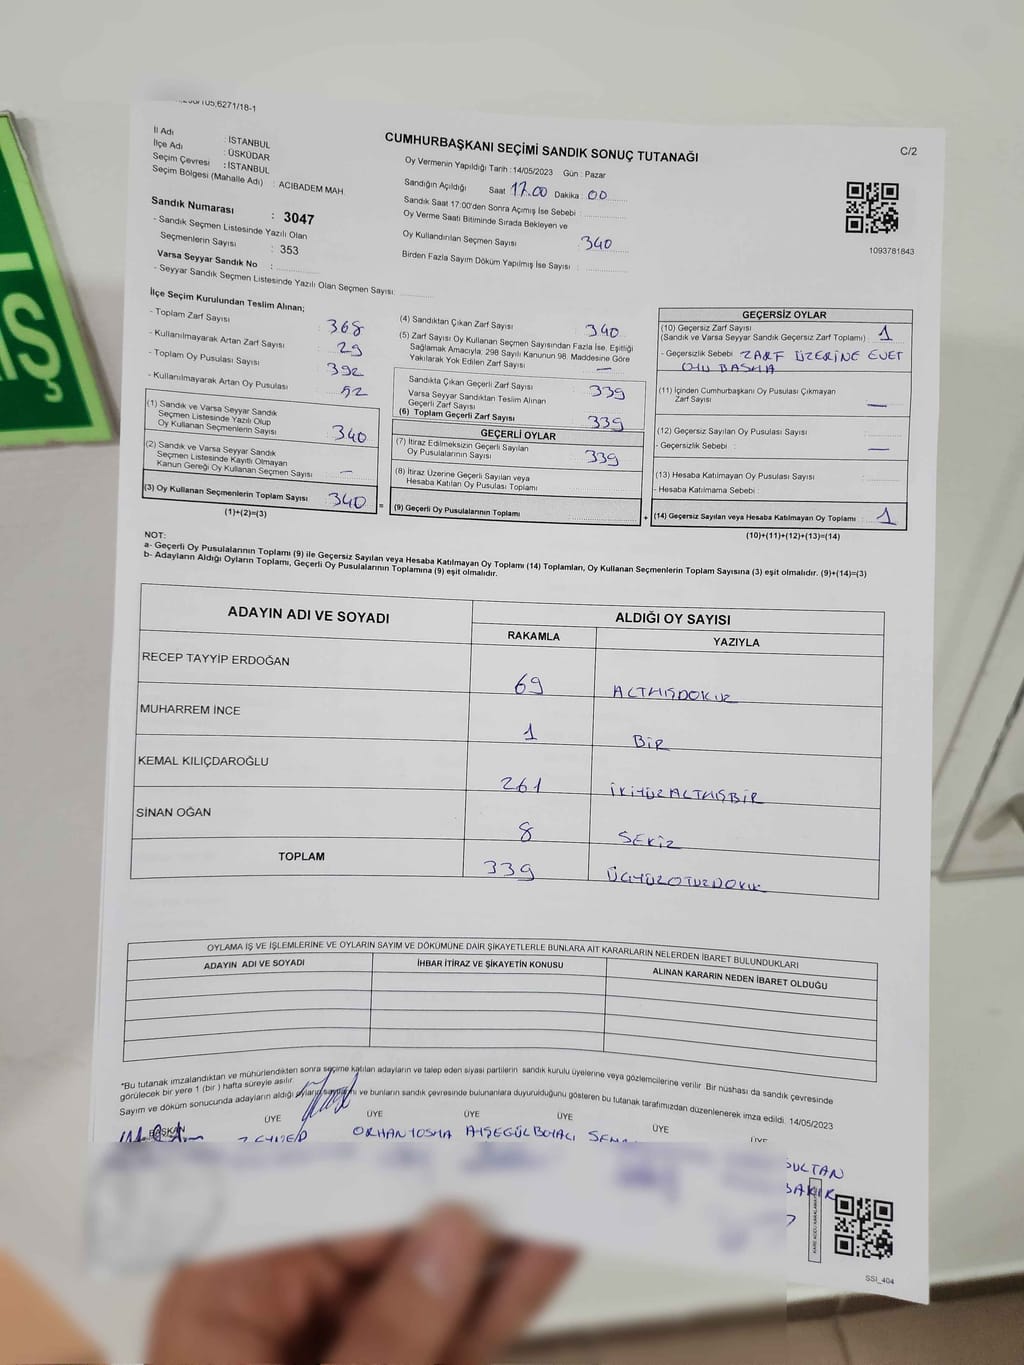 6271/18-1
İl Adı : İSTANBUL
İlçe Adı : ÜSKÜDAR
Seçim Çevresi : İSTANBUL
Seçim Bölgesi (Mahalle Adı) : ACIBADEM MAH.
CUMHURBAŞKANI SEÇİMİ SANDIK SONUÇ TUTANAĞI
C/2
Oy Vermenin Yapıldığı Tarih : 14/05/2023 Gün : Pazar
Sandığın Açıldığı Saat 17.00 Dakika : 00
Sandık Saat 17:00'den Sonra Açımış İse Sebebi :
Oy Verme Saati Bitiminde Sırada Bekleyen ve
Oy Kullandırılan Seçmen Sayısı : 340
Birden Fazla Sayım Döküm Yapılmış İse Sayısı :
1093781843
Sandık Numarası : 3047
- Sandık Seçmen Listesinde Yazılı Olan
Seçmenlerin Sayısı : 353
Varsa Seyyar Sandık No :
- Seyyar Sandık Seçmen Listesinde Yazılı Olan Seçmen Sayısı:
İlçe Seçim Kurulundan Teslim Alınan;
- Toplam Zarf Sayısı : 368
- Kullanılmayarak Artan Zarf Sayısı : 29
- Toplam Oy Pusulası Sayısı : 392
- Kullanılmayarak Artan Oy Pusulası : 52
(1) Sandık ve Varsa Seyyar Sandık
Seçmen Listesinde Yazılı Olup
Oy Kullanan Seçmenlerin Sayısı : 340
(2) Sandık ve Varsa Seyyar Sandık
Seçmen Listesinde Kayıtlı Olmayan
Kanun Gereği Oy Kullanan Seçmen Sayısı : –
(3) Oy Kullanan Seçmenlerin Toplam Sayısı : 340
(1)+(2)=(3)
=
(4) Sandıktan Çıkan Zarf Sayısı : 340
(5) Zarf Sayısı Oy Kullanan Seçmen Sayısından Fazla İse, Eşitliği
Sağlamak Amacıyla, 298 Sayılı Kanunun 98. Maddesine Göre
Yakılarak Yok Edilen Zarf Sayısı : —
Sandıkta Çıkan Geçerli Zarf Sayısı : 339
Varsa Seyyar Sandıktan Teslim Alınan
Geçerli Zarf Sayısı :
(6) Toplam Geçerli Zarf Sayısı : 339
GEÇERLİ OYLAR
(7) İtiraz Edilmeksizin Geçerli Sayılan
Oy Pusulalarının Sayısı : 339
(8) İtiraz Üzerine Geçerli Sayılan veya
Hesaba Katılan Oy Pusulası Toplamı :
(9) Geçerli Oy Pusulalarının Toplamı :
+
GEÇERSİZ OYLAR
(10) Geçersiz Zarf Sayısı
(Sandık ve Varsa Seyyar Sandık Geçersiz Zarf Toplamı) : 1
- Geçersizlik Sebebi : ZARF ÜZERİNE EVET
OYU BASMA
(11) İçinden Cumhurbaşkanı Oy Pusulası Çıkmayan
Zarf Sayısı : —
(12) Geçersiz Sayılan Oy Pusulası Sayısı :
- Geçersizlik Sebebi : —
(13) Hesaba Katılmayan Oy Pusulası Sayısı :
- Hesaba Katılmama Sebebi :
(14) Geçersiz Sayılan veya Hesaba Katılmayan Oy Toplamı : 1
(10)+(11)+(12)+(13)=(14)
NOT:
a- Geçerli Oy Pusulalarının Toplamı (9) ile Geçersiz Sayılan veya Hesaba Katılmayan Oy Toplamı (14) Toplamları, Oy Kullanan Seçmenlerin Toplam Sayısına (3) eşit olmalıdır. (9)+(14)=(3)
b- Adayların Aldığı Oyların Toplamı, Geçerli Oy Pusulalarının Toplamına (9) eşit olmalıdır.
ADAYIN ADI VE SOYADI
ALDIĞI OY SAYISI
RAKAMLA YAZIYLA
RECEP TAYYİP ERDOĞAN 69 ALTMIŞDOKUZ
MUHARREM İNCE 1 BİR
KEMAL KILIÇDAROĞLU 261 İKİYÜZALTMIŞBİR
SİNAN OĞAN 8 SEKİZ
TOPLAM 339 ÜÇYÜZOTUZDOKUZ
OYLAMA İŞ VE İŞLEMLERİNE VE OYLARIN SAYIM VE DÖKÜMÜNE DAİR ŞİKAYETLERLE BUNLARA AİT KARARLARIN NELERDEN İBARET BULUNDUKLARI
ADAYIN ADI VE SOYADI
İHBAR İTİRAZ VE ŞİKAYETİN KONUSU
ALINAN KARARIN NEDEN İBARET OLDUĞU
"Bu tutanak imzalandıktan ve mühürlendikten sonra seçime katılan adayların ve talep eden siyasi partilerin sandık kurulu üyelerine veya gözlemcilerine verilir Bir nüshası da sandık çevresinde
görülecek bir yere 1 (bir ) hafta süreyle asılır.
Sayım ve döküm sonucunda adayların aldığı oyların ve bunların sandık çevresinde bulunanlara duyurulduğunu gösteren bu tutanak tarafımızdan düzenlenerek imza edildi. 14/05/2023
BAŞKAN ÜYE ÜYE ÜYE ÜYE ÜYE ÜYE
ORHAN TOSYA AYŞEGÜL BOYACI
SULTAN
SSI_404